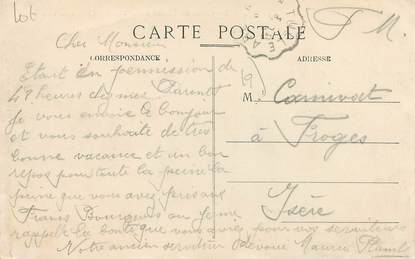 Lot
F. M.
CARTE POSTALE
Cher Monsieur
CORRESPONDANCE
ADRESSE
Etant en permission de
48 heures chez mes Parents
je vous envoie le bonjour
et vous souhaite de très
bonne vacance et un bon
repos pour toute la peine la
peine que vous avez
Francis Bourguès
rappele la bonté que vous avez pour vos serviteurs
Notre ancien serviteur Dévoué Maurice
19
M. Carnivet
à Froges
Isère